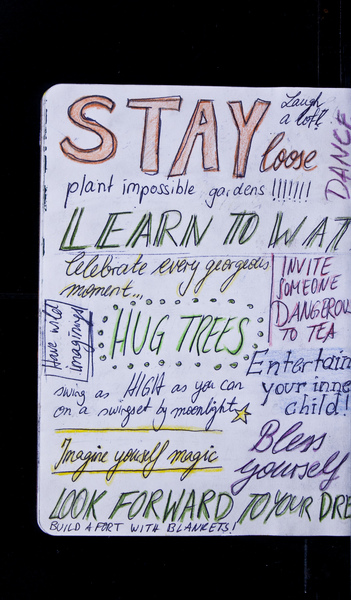 STAY
loose
Laugh
a lot!!
DANCE
plant impossible gardens !!!!!!!
LEARN TO WAT
Celebrate every gorgeous
moment...
INVITE
SOMEONE
DANGEROU
TO TEA
Have wild
imaginings
HUG TREES
Entertain
your inne
child!
swing as HIGH as you can
on a swingset by moonlight
Bless
yourself
Imagine yourself magic
LOOK FORWARD TO YOUR DRE
BUILD A FORT WITH BLANKETS!